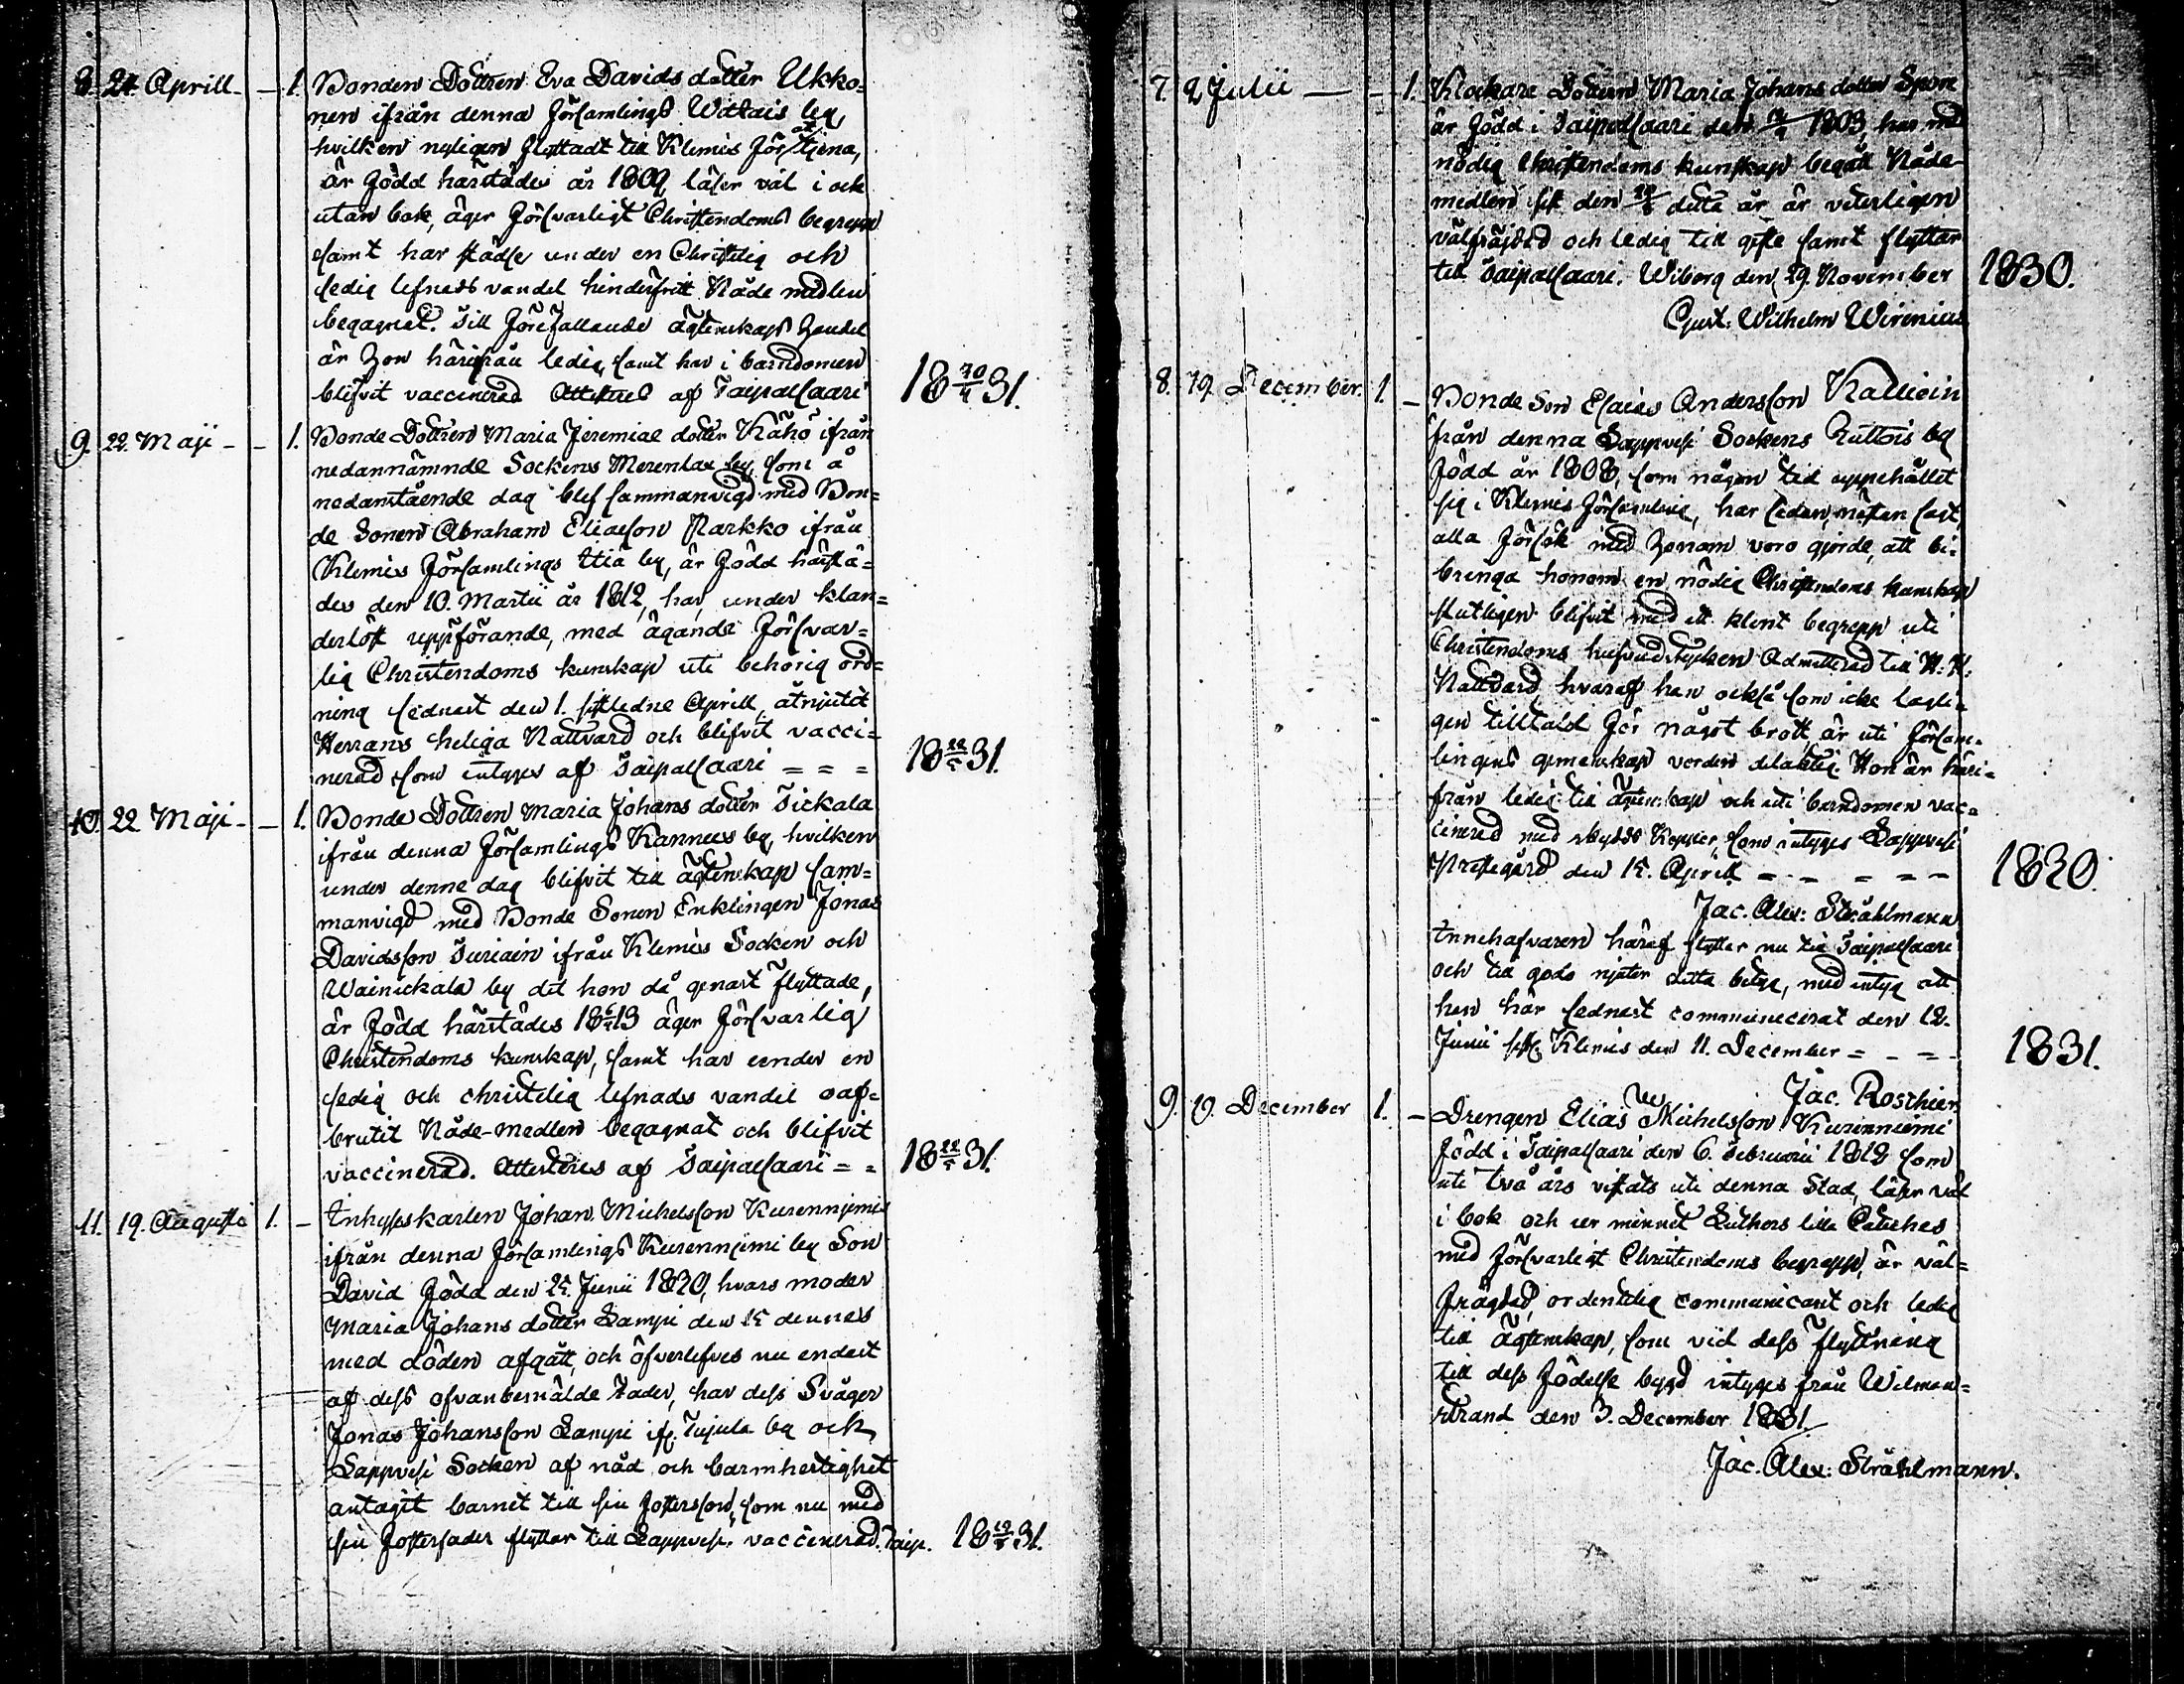 8. 24 Aprill - - 1. Bonden Dottren Eva Davids dotter Ukko=
nen ifrån denna Församlings Witsais by,
hvilken nyligen flyttadt till Klemis för at tjena,
är född härstädes år 1809, läser väl i och
utan bok, äger försvarligt Christendoms begrepp
samt har städse under en Christelig och
sedig lefnads vandel hinderfritt Nåde medlen
begagnat. Till förefallande ägtenskaps handel
är hon härifrån ledig, samt har i barndomen
blifvit vaccinerad Attesteras af Taipalsaari 18 30/4 31.
9. 22. Maji - - 1. Bonde Dottren Maria Jeremiae dotter Kähö ifrån
nedannämnde Sockens Merenlax by, som å
nedanstående dag blef sammanvigd med Bon=
de Sonen Abraham Eliasson Markko ifrån
Klemis Församlings Itiä by, är född härstä=
des den 10. Martii år 1812, har under klan=
derlöst uppförande, med ägande försvar=
lig Christendoms kunskap uti behörig ord=
ning sednast den 1. sistledne Aprill, åtnjutit
Herrans heliga Nattvard och blifvit vacci=
nerad, som intyges af Taipalsaari = = = 18 22/5 31.
10. 22 Maji - - 1. Bonde Dottren Maria Johans dotter Tickala
ifrån denna Församlings Kannus by, hvilken
under denne dag blifvit till ägtenskap sam=
manvigd med Bonde Sonen Enklingen Jonas
Davidsson Suriain ifrån Klemis Socken och
Wainickala by dit hon då genast flyttade,
är född härstädes 18 6/5 13 äger försvarlig
Christendoms kunskap, samt har under en
sedig och christelig lefnads vandel oaf=
brutit Nåde-medlen begagnat och blifvit
vaccinerad. Attesteras af Taipalsaari = = 18 22/5 31.
11. 19. Augusti 1. - Inhyseskarlen Johan Michelsson Kurennjemis
ifrån denna Församlings Kurennjemi by Son
David född den 25. Junii 1830, hvars moder
Maria Johans dotter Lampi den 15 dennes
med döden afgått, och öfverlefves nu endast
af dess ofvanbemälde fader, har dess Svåger
Jonas Johansson Lampi ifr. Tujula by och
Lappvesi Socken af nåd och barmhertighet
antagit barnet till sin fosterson, som nu med
sin fosterfader flyttar till Lappvesi. vaccinerad. Taip. 18 19/8 31.
7. 2 Julii - - 1. Klockare Dottren Maria Johans dotter Spore
är född i Taipalsaari den 1803, har med
nödig Christendoms kunskap begått Nåde-
medlen sist den detta år, är veterligen
välfrägdad och ledig till gifte samt flyttar
till Taipalsaari. Wiborg den 29. November 1830.
Gust: Wilhelm Wirenius
8. 19. December. 1. - Bonde Son Esaias Andersson Kallioin
från denna Lappvesi Sockens Ruttois by
född år 1808, som någon tid uppehållet
sig i Klemis Församling, har sedan, nästan sagt,
alla försök med honom voro gjorde, att bi-
bringa honom en nödig Christendoms kunskap
slutligen blifvit med ett klent begrepp uti
Christendoms hufvudstycken admitterad till H. H.
Nattvard, hvaraf han också som icke lagli-
gen tilltald för något brott, är uti Försam-
lingens gemenskap vorden delaktig. Hon är häri-
från ledig till ägtenskap och uti barndomen vac-
cinerad med skydds Koppor, som intyges Lappvesi
Prestegård den 15. Aprill = - - = - - 1830.
Jac. Alex: Stråhlmann
Innehafvaren häraf flyttar nu till Taipalsaari
och till godo njuter detta betyg, med intyg att
han här sednast communicerat den 12.
Junii sistl. Klemis den 11. December = - = - 1831.
Jac. Roschier
9. 19. December 1. - Drengen Elias Michelsson Kurennjemi
född i Taipalsaari den 6. Februarii 1812 som
uti två års vistats uti denna Stad, läser väl
i bok och ur minnet Luthers lilla Cateches
med försvarligt Christendoms begrepp, är väl=
frägdad, ordentelig communicant och ledig
till ägtenskap, som vid dess flyttning
till dess födelse bygd intyges från Wilman=
strand den 3. December 1831.
Jac. Alex: Stråhlmann.